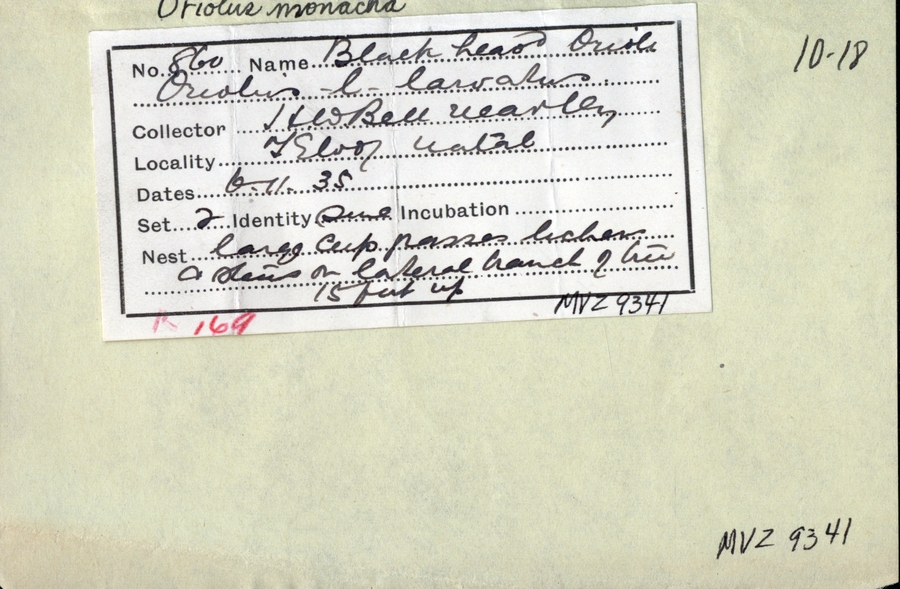 Oriolus monacha
10-18
No. 860 Name Black head Oriole
Oriolus - l - larvatus
Collector H W Bell Marley
Locality Natal
Dates 6.11.35
Set 2 Identity Sure Incubation
Nest large cup lichens
on lateral branch of tree
15 feet up
MVZ 9341
R 169
MVZ 9341